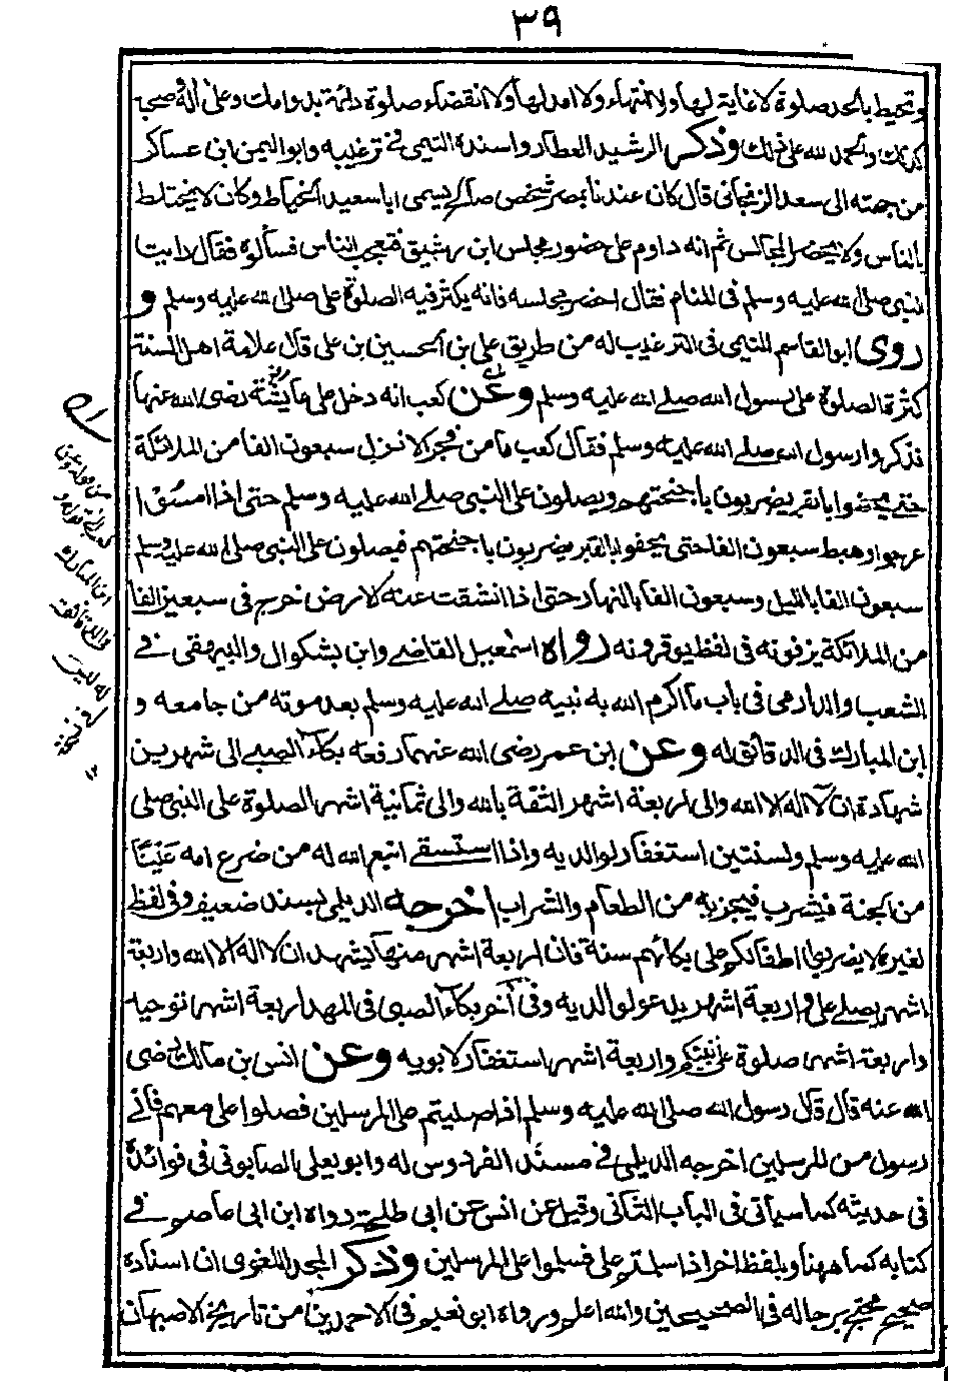 ٣٩
وتحيط بالحد صلوة لا غاية لها ولا انتهاء ولا امد لها ولا انقضاء صلوة دائمة بدوامك وعلى اله وصحبه
كذلك والحمد لله على ذلك وذكر الرشيد العطار واسنده التيمى فى ترغيبه وابو اليمن ابن عساكر
من جهته الى سعد الزنجانى قال كان عندنا بمصر شخص صالح يسمى ابا سعيد الخياط وكان لا يختلط
بالناس ولا يحضر المجالس ثم انه داوم على حضور مجلس ابن رشيق فتعجب الناس فسألوه فقال رايت
النبى صلى الله عليه وسلم فى المنام فقال احضر مجلسه فانه يكثر فيه الصلوة على صلى الله عليه وسلم و
روى ابو القاسم التيمى فى الترغيب له من طريق على بن الحسين بن على قال علامة اهل السنة
كثرة الصلوة على رسول الله صلى الله عليه وسلم وعن كعب انه دخل على عائشة رضى الله عنها
فذكروا رسول الله صلى الله عليه وسلم فقال كعب ما من فجر الا نزل سبعون الفا من الملائكة
حتى يحفوا بالقبر يضربون باجنحتهم ويصلون على النبى صلى الله عليه وسلم حتى اذا امسوا
عرجوا وهبط سبعون الفا حتى يحفوا بالقبر يضربون باجنحتهم فيصلون على النبى صلى الله عليه وسلم
سبعون الفا بالليل وسبعون الفا بالنهار حتى اذا انشقت عنه الارض خرج فى سبعين الفا
من الملائكة يزفونه فى لفظ يوقرونه رواه اسمعيل القاضى وابن بشكوال والبيهقى فى
الشعب والدارمى فى باب ما اكرم الله به نبيه صلى الله عليه وسلم بعد موته من جامعه و
ابن المبارك فى الدقائق له وعن ابن عمر رضى الله عنهما رفعه بكاء الصبى الى شهرين
شهادة ان لا اله الا الله والى اربعة اشهر الثقة بالله والى ثمانية اشهر الصلوة على النبى صلى
الله عليه وسلم ولسنتين استغفار لوالديه واذا استسقى انبع الله له من ضرع امه عينا
من الجنة فيشرب فيجزيه من الطعام والشراب اخرجه الديلمى بسند ضعيف وفى لفظ
لغيره لا يضربوا اطفالكم على بكائهم سنة فان اربعة اشهر منها يشهد ان لا اله الا الله واربعة
اشهر يصلى على واربعة اشهر يدعو لوالديه وفى آخر بكاء الصبى فى المهد اربعة اشهر توحيد
واربعة اشهر صلوة على نبيكم واربعة اشهر استغفار لابويه وعن انس بن مالك رضى
الله عنه قال قال رسول الله صلى الله عليه وسلم اذا صليتم على المرسلين فصلوا على معهم فانى
رسول من المرسلين اخرجه الديلمى فى مسند الفردوس له وابو يعلى الصابونى فى فوائده
فى حديثه كما سيأتى فى الباب الثانى وقيل عن انس عن ابى طلحة رواه ابن ابى عاصم فى
كتابه كما ههنا وبلفظ اخر اذا سلمتم على فسلموا على المرسلين وذكر المجد اللغوى ان اسناده
صحيح محتج برجاله فى الصحيحين والله اعلم ورواه ابو نعيم فى الاحمدين من تاريخ الاصبهان
من قوله وعن
ابن المبارك